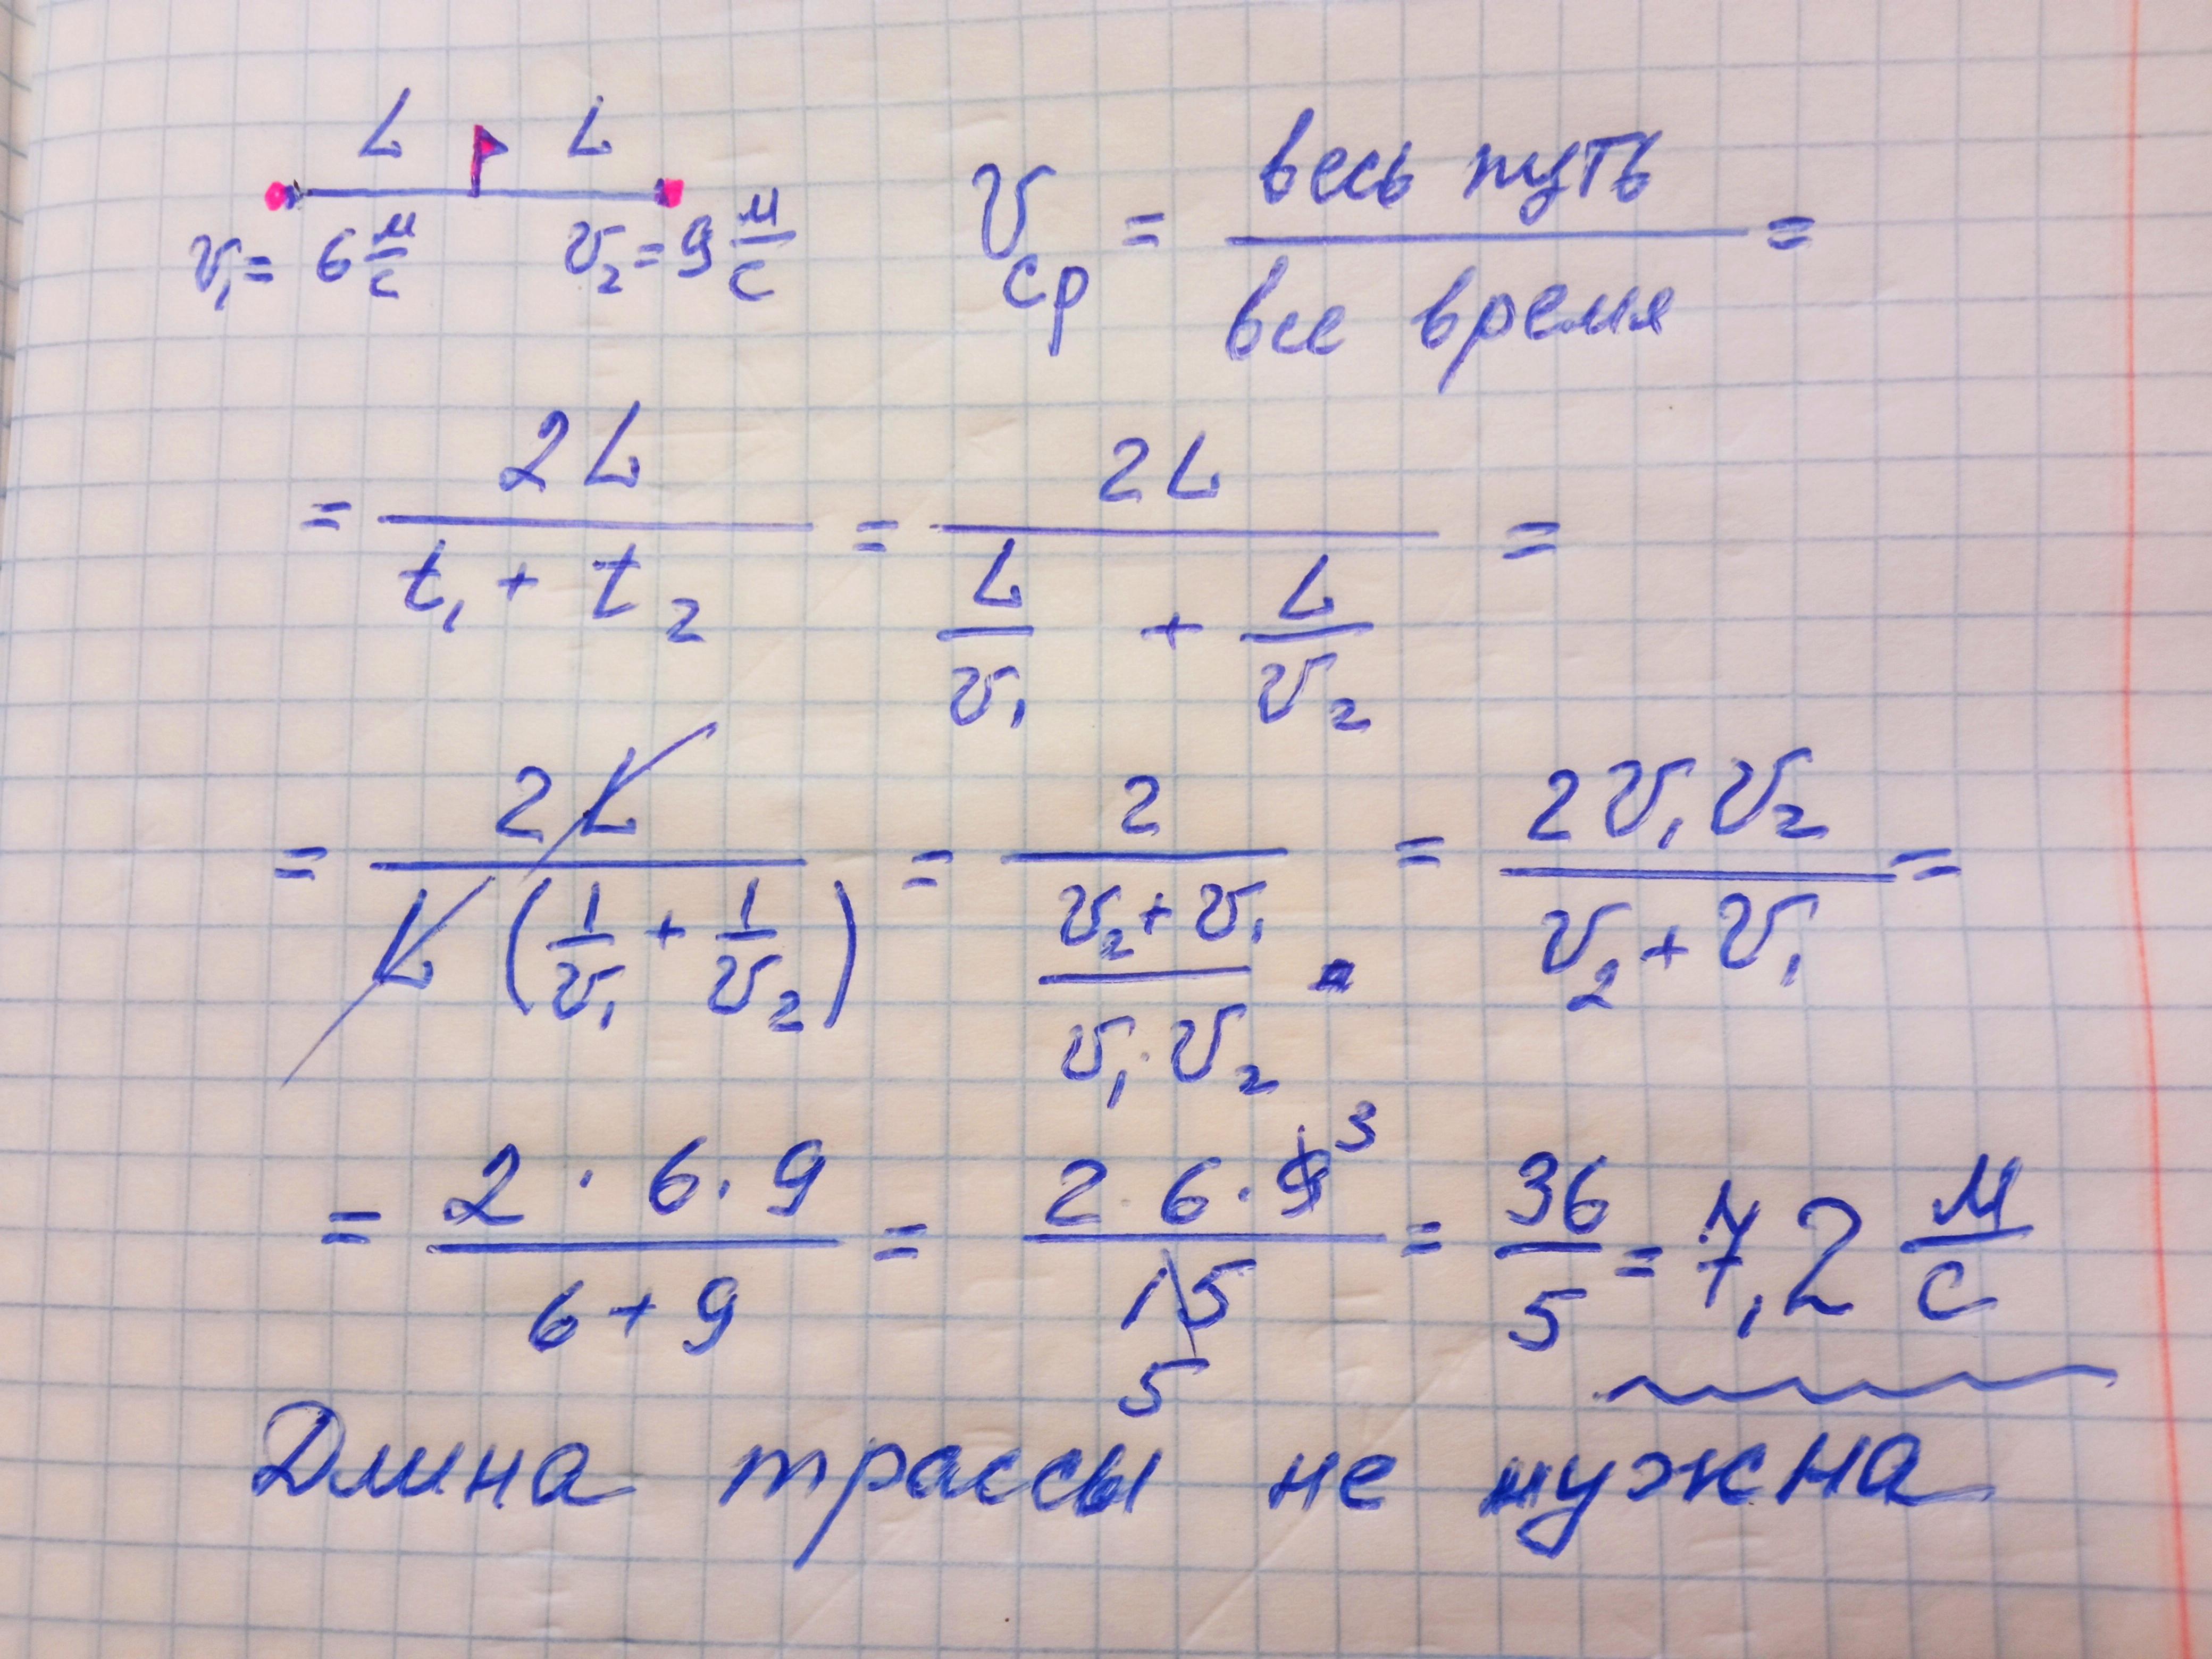 L L
v₁ = 6 м/с v₂ = 9 м/с
v ср = весь путь / все время =
= 2L / (t₁ + t₂) = 2L / (L/v₁ + L/v₂) =
= 2L / (L (1/v₁ + 1/v₂)) = 2 / ((v₂ + v₁) / (v₁ · v₂)) = 2v₁v₂ / (v₂ + v₁) =
= (2 · 6 · 9) / (6 + 9) = (2 · 6 · 9 3) / (15 5) = 36/5 = 7,2 м/с
Длина трассы не нужна